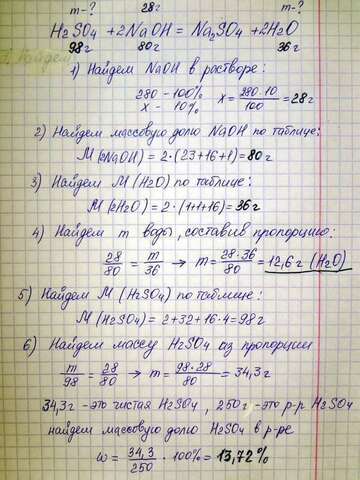 m-? 28г m-?
H₂SO₄ + 2NaOH = Na₂SO₄ + 2H₂O
98г 80г 36г
1) Найдем NaOH в растворе:
280 – 100% x = 280·10/100 = 28г
x – 10%
2) Найдем массовую долю NaOH по таблице:
M(2NaOH) = 2·(23+16+1) = 80г
3) Найдем M(H₂O) по таблице:
M(2H₂O) = 2·(1+1+16) = 36г
4) Найдем m воды, составив пропорцию:
28/80 = m/36 → m = 28·36/80 = 12,6г (H₂O)
5) Найдем M(H₂SO₄) по таблице:
M(H₂SO₄) = 2+32+16·4 = 98г
6) Найдем массу H₂SO₄ из пропорции
m/98 = 28/80 → m = 98·28/80 = 34,3г
34,3г - это чистая H₂SO₄, 250г - это р-р H₂SO₄
найдем массовую долю H₂SO₄ в р-ре
ω = 34,3/250 · 100% = 13,72%